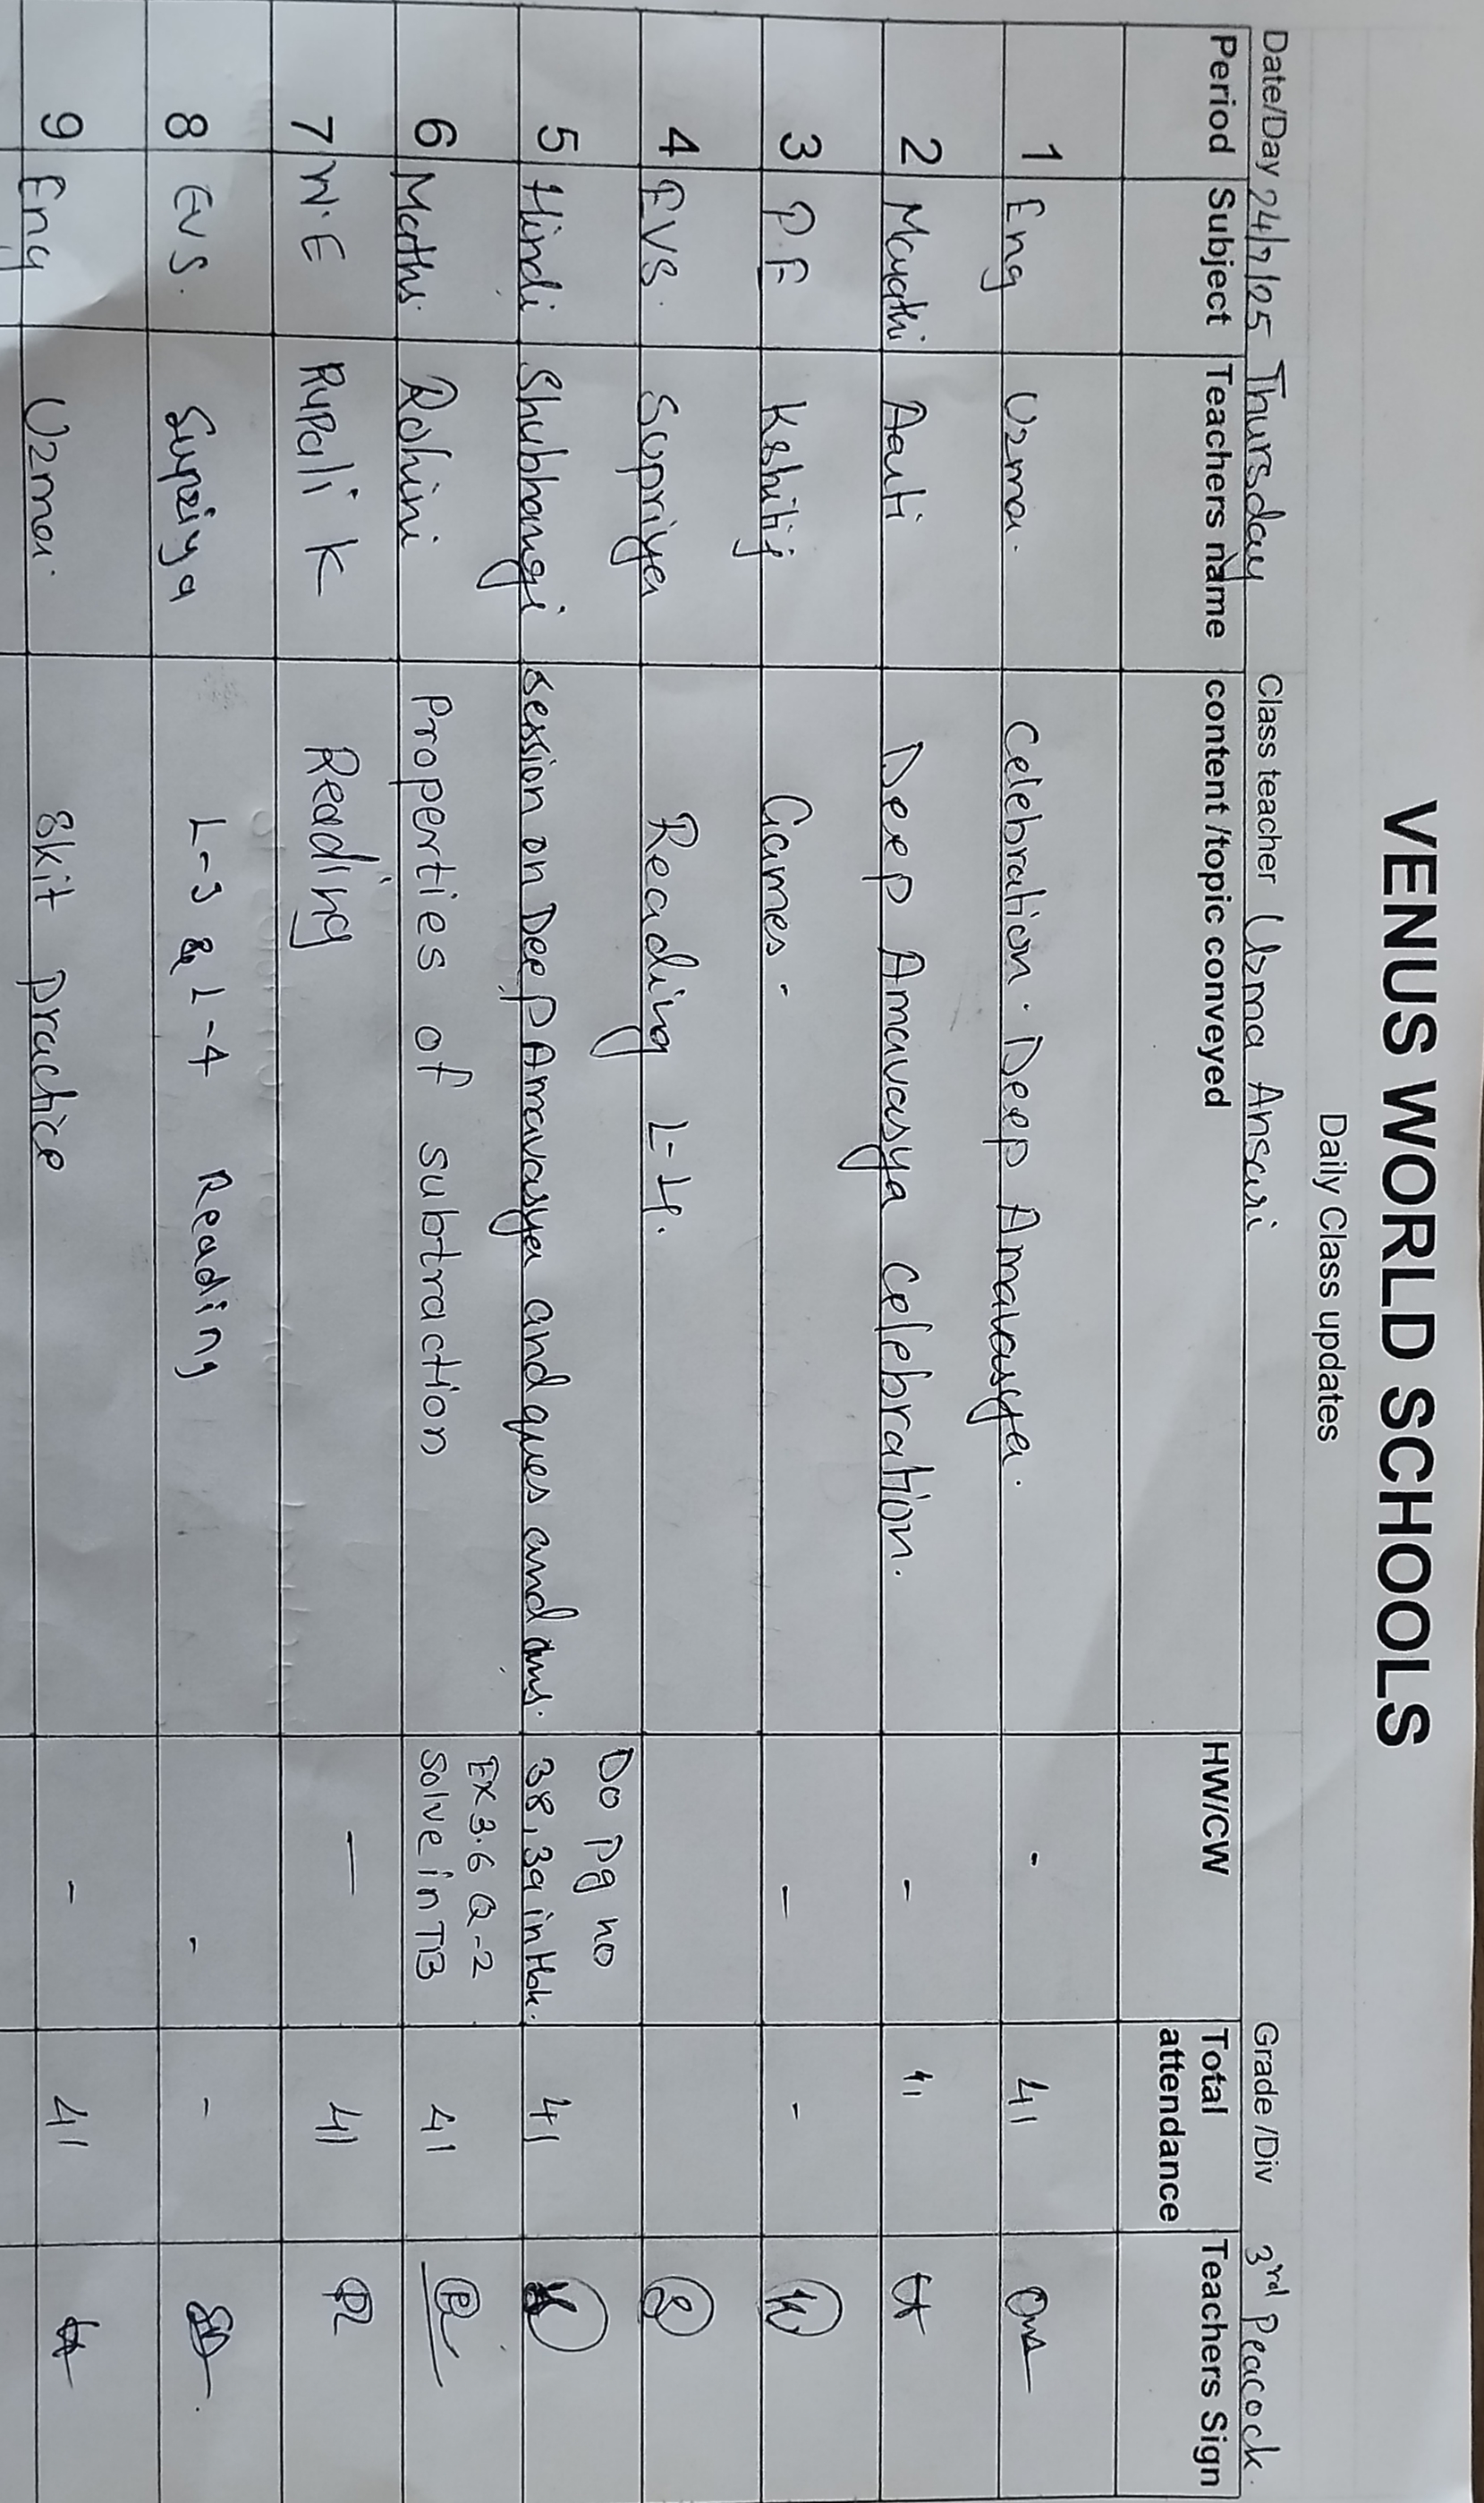 VENUS WORLD SCHOOLS
Daily Class updates
Date/Day 24/7/25 Thursday Class teacher Uzma Ansari Grade /Div 3rd Peacock.
Period Subject Teachers name content /topic conveyed HW/CW Total attendance Teachers Sign
1 Eng Uzma. Celebration. Deep Amavasya. - 41
2 Marathi Aarti Deep Amavasya Celebration. - 41
3 P E Kshitij Games. - -
4 EVS. Supriya Reading L-4.
5 Hindi Shubhangi session on Deep Amavasya and ques and ans. Do pg no 38, 39 in Hbk. 41
6 Maths. Rohini Properties of subtraction Ex 3.6 Q-2 Solve in TB 41
7 W.E Rupali K Reading — 41
8 EVS. Supriya L-3 & L-4 Reading - -
9 Eng Uzma. Skit practice - 41